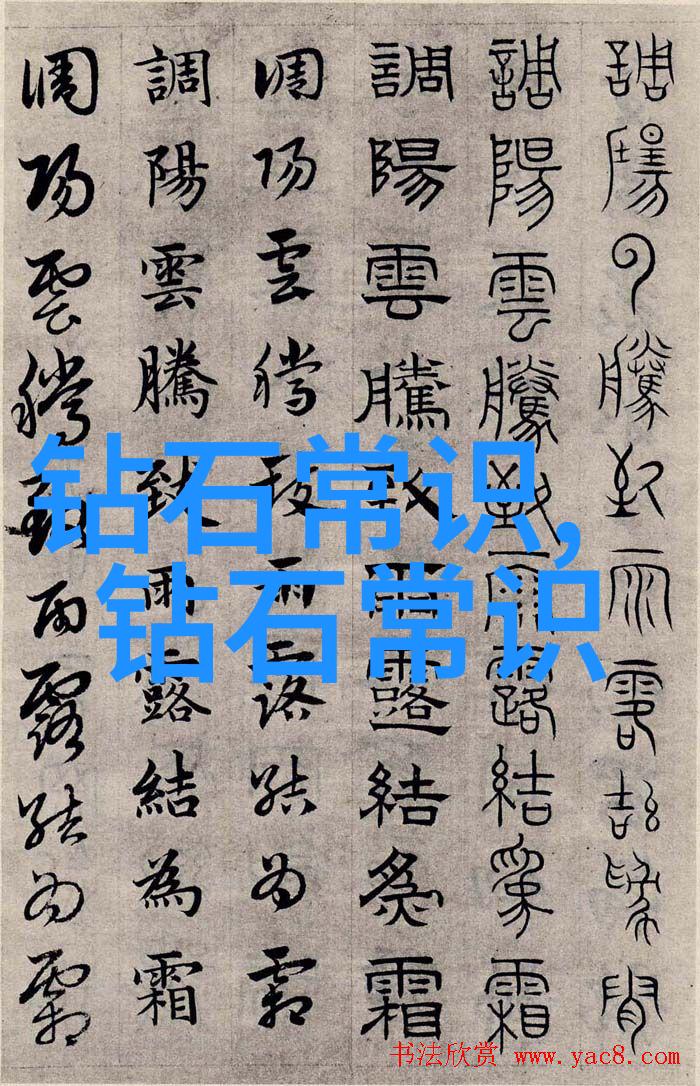 調陽雲騰致雨露結為霜
調陽雲騰致雨露結為霜
調陽雲騰致雨露結為霜
調陽雲騰致雨露結為霜
調陽雲騰致雨露結為霜
調陽雲騰致雨露結為霜
钻石常识,
钻石常识
书法欣赏 www.yac8.com